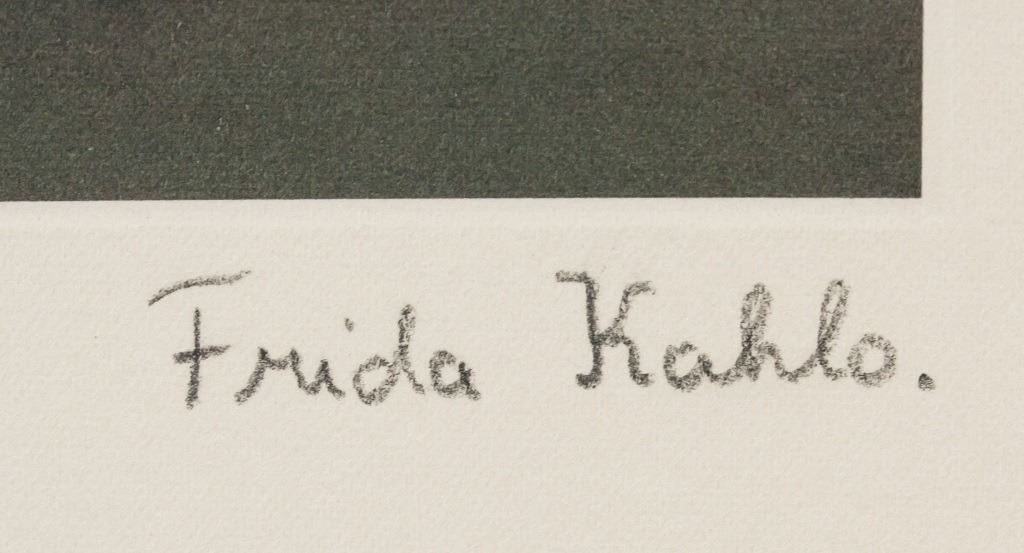 Frida Kahlo.